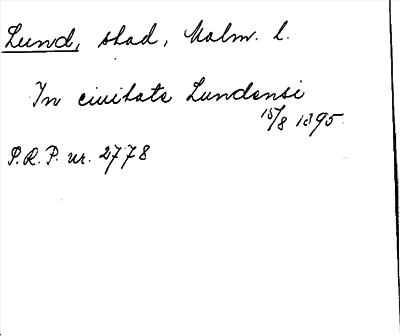 Lund, stad, Malm. l.
In civitate Lundensi
15/8 1395.
P.R.P. nr. 2778